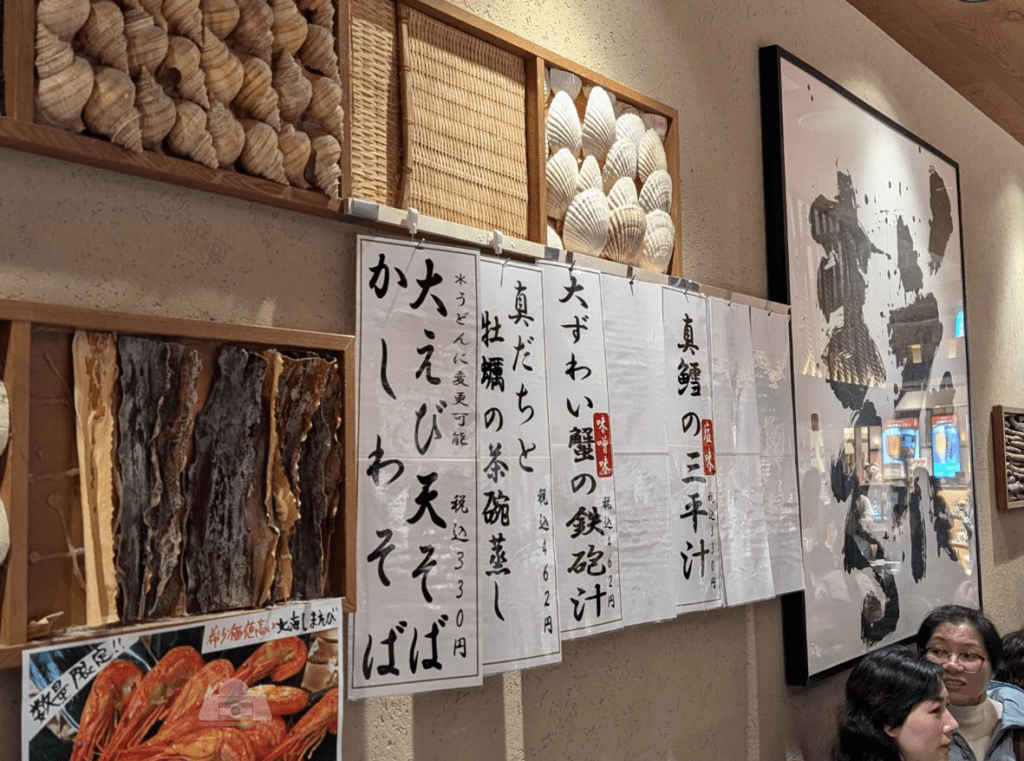 真鱈の三平汁
塩味
税込
大ずわい蟹の鉄砲汁
味噌味
税込462円
真だちと
牡蠣の茶碗蒸し
税込462円
*うどんに変更可能
大えび天そば
かしわそば
税込330円
数量限定!!
希少価値高い北海しまえび